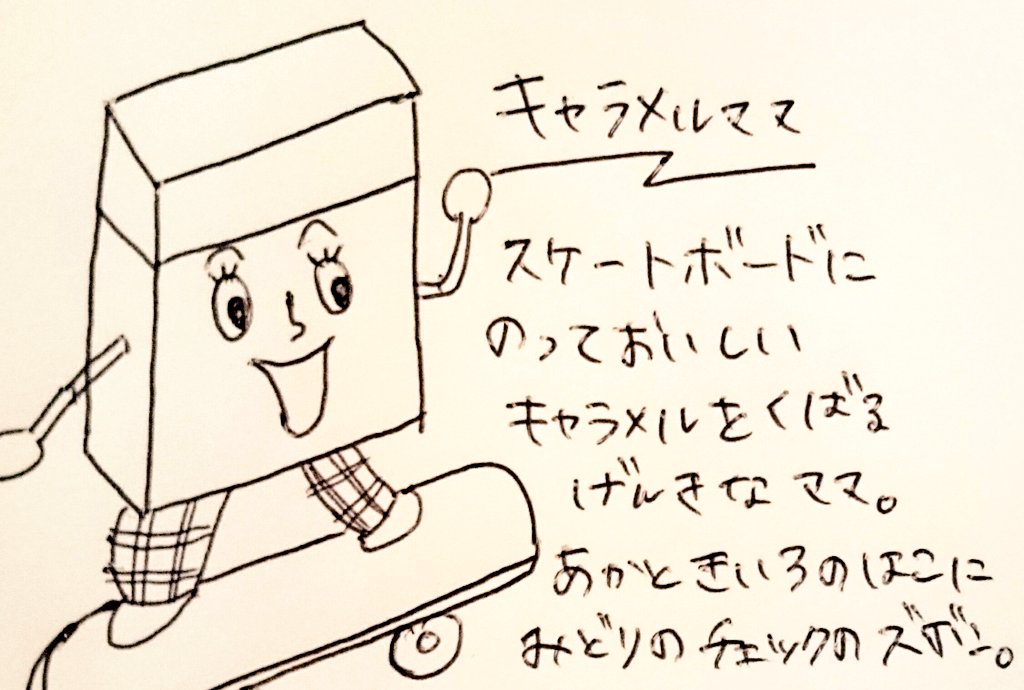 キャラメルママ
スケートボードに
のっておいしい
キャラメルをくばる
げんきなママ。
あかときいろのはこに
みどりのチェックのズボン。